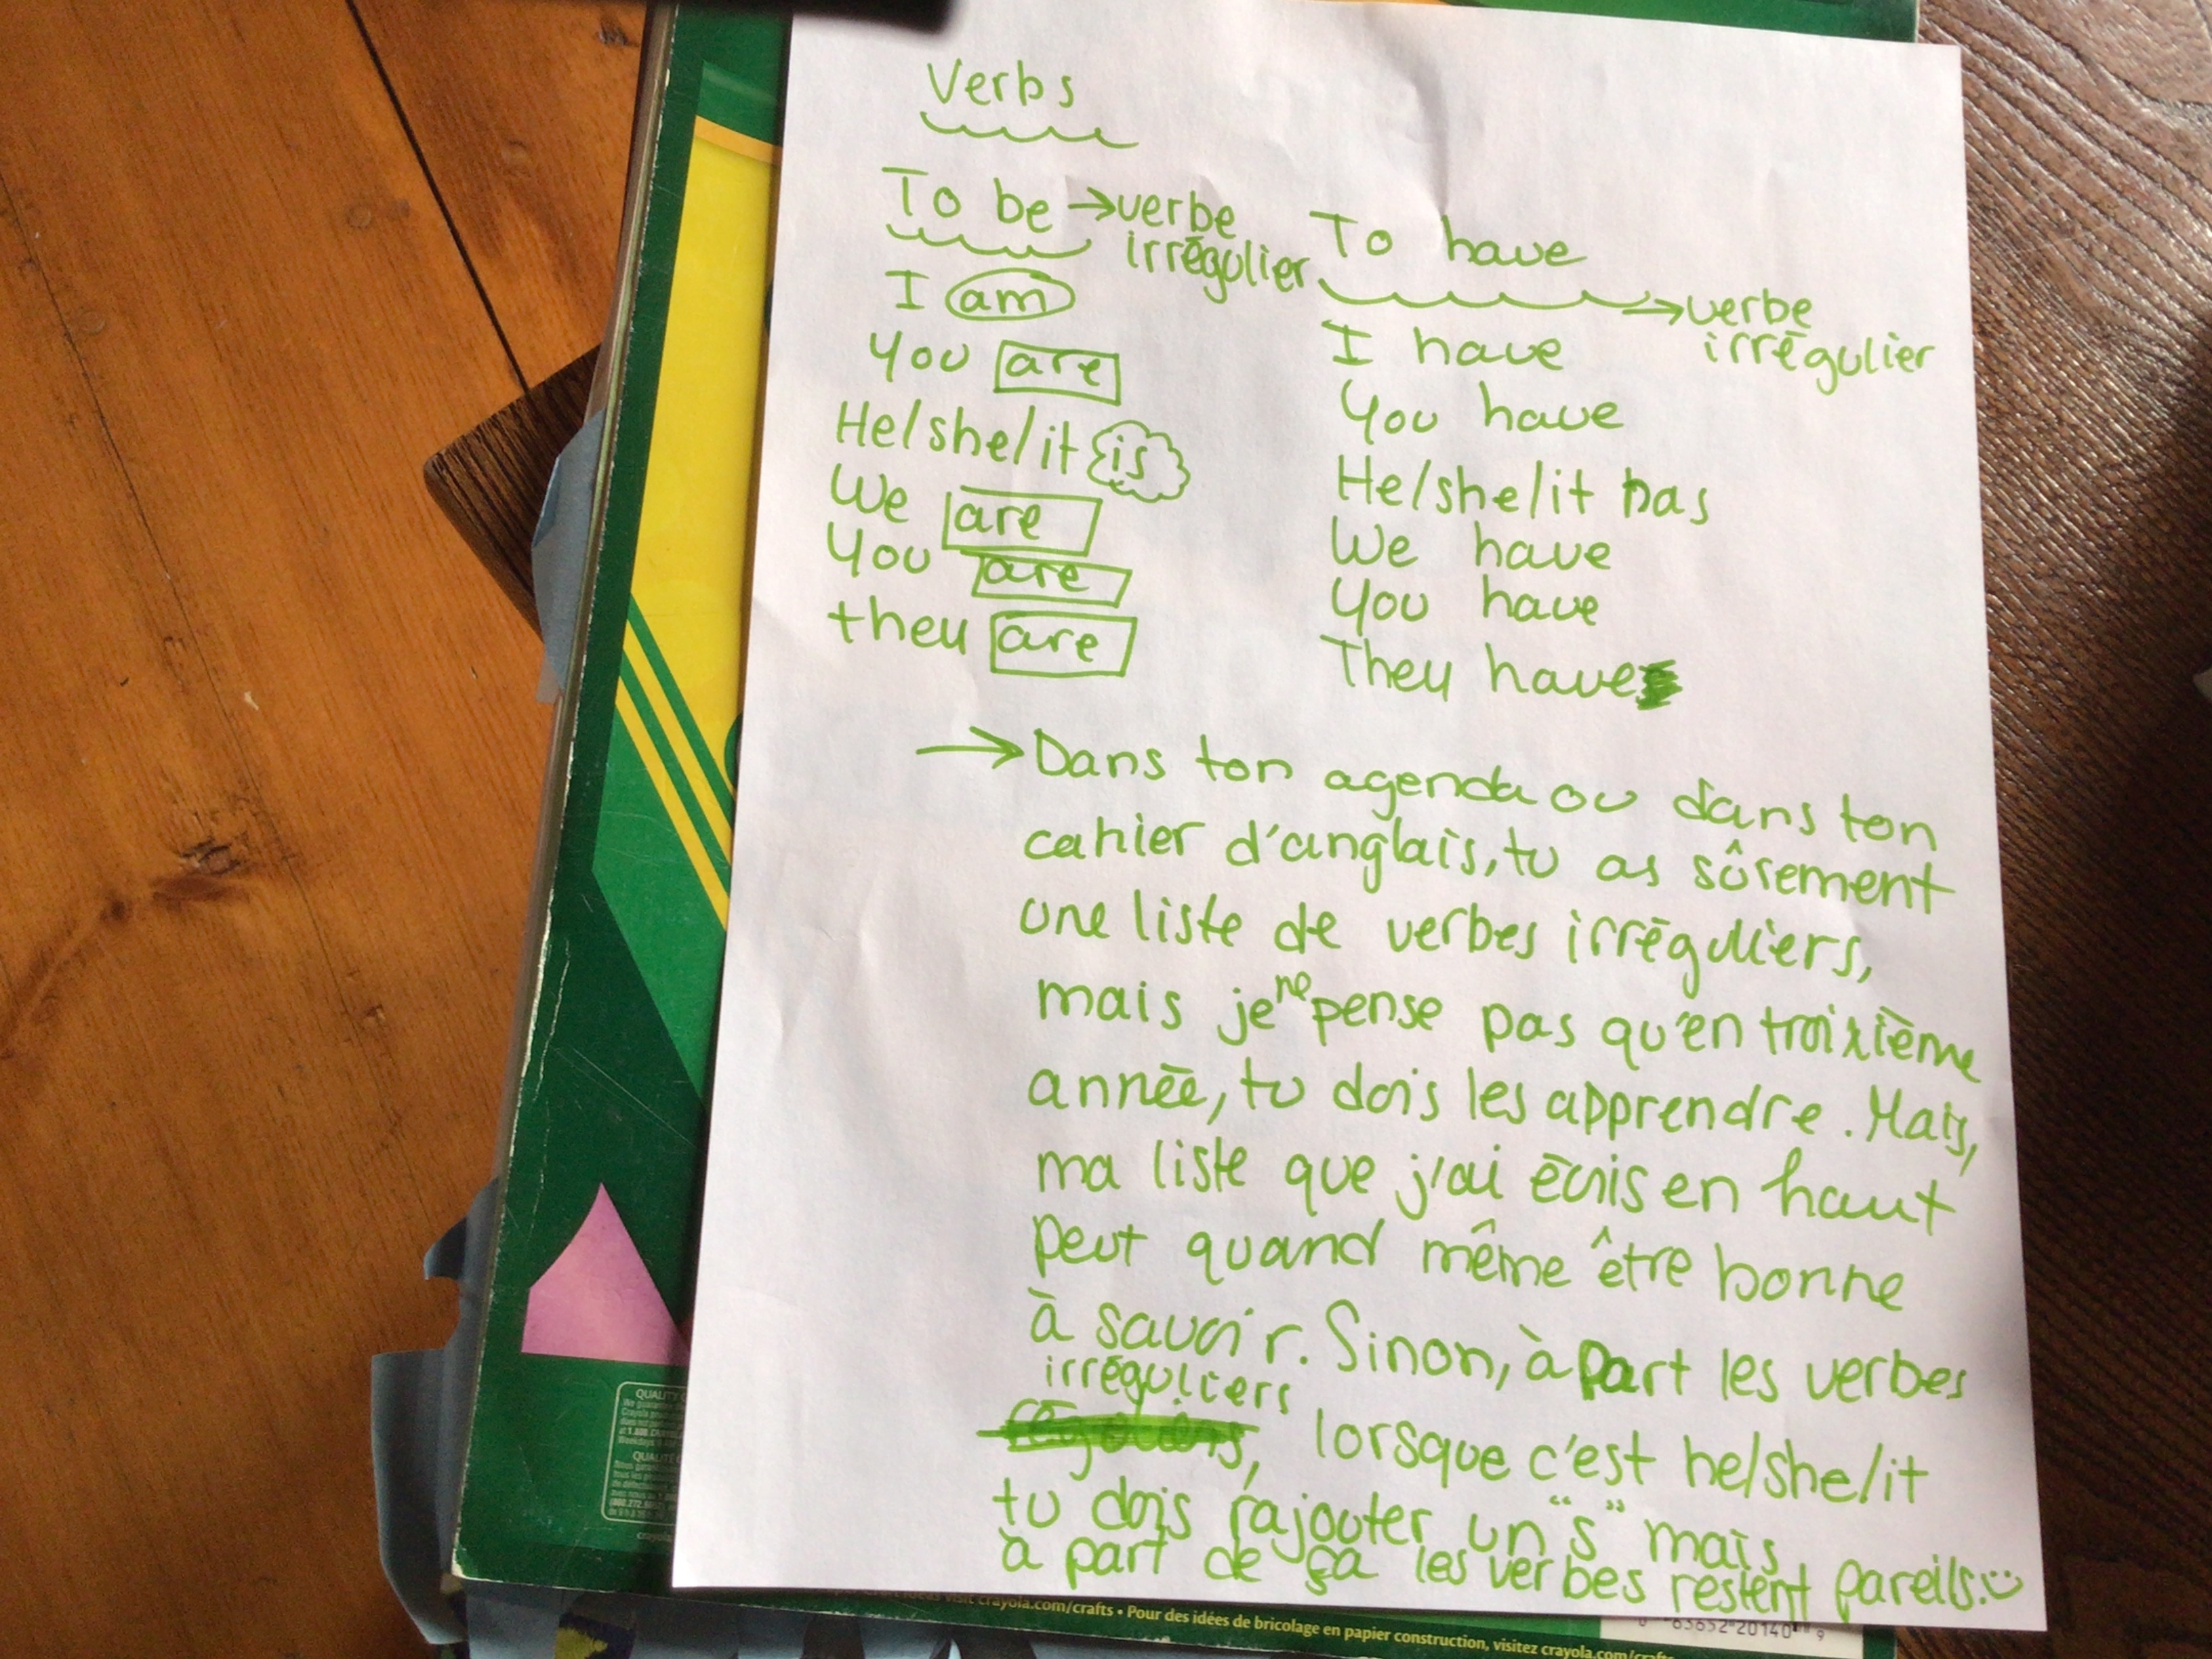 Verbs
To be → verbe
irrégulier
I am
You are
He/she/it is
We are
You are
they are
To have
→ verbe
irrégulier
I have
You have
He/she/it has
We have
You have
They have
→ Dans ton agenda ou dans ton
cahier d'anglais, tu as sûrement
une liste de verbes irréguliers,
mais je ne pense pas qu'en troixième
année, tu dois les apprendre. Mais,
ma liste que j'ai écris en haut
peut quand même être bonne
à savoir. Sinon, à part les verbes
irréguliers
, lorsque c'est he/she/it
tu dois rajouter un "s" mais
à part de ça les verbes restent pareils.
QUALITY
QUALITÉ
visit crayola.com/crafts • Pour des idées de bricolage en papier construction, visitez crayola.com/crafts
65652 20140 9